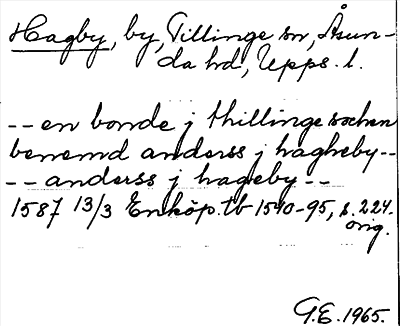 Hagby, by, Tillinge sn, Åsun-
da hd, Upps. l.
-- en bonde j thillinge sochen
benemd anderss j hagheby --
-- anderss j hageby --
1587 13/3 Enköp. tb 1540-95, s. 224.
orig.
G.E. 1965.